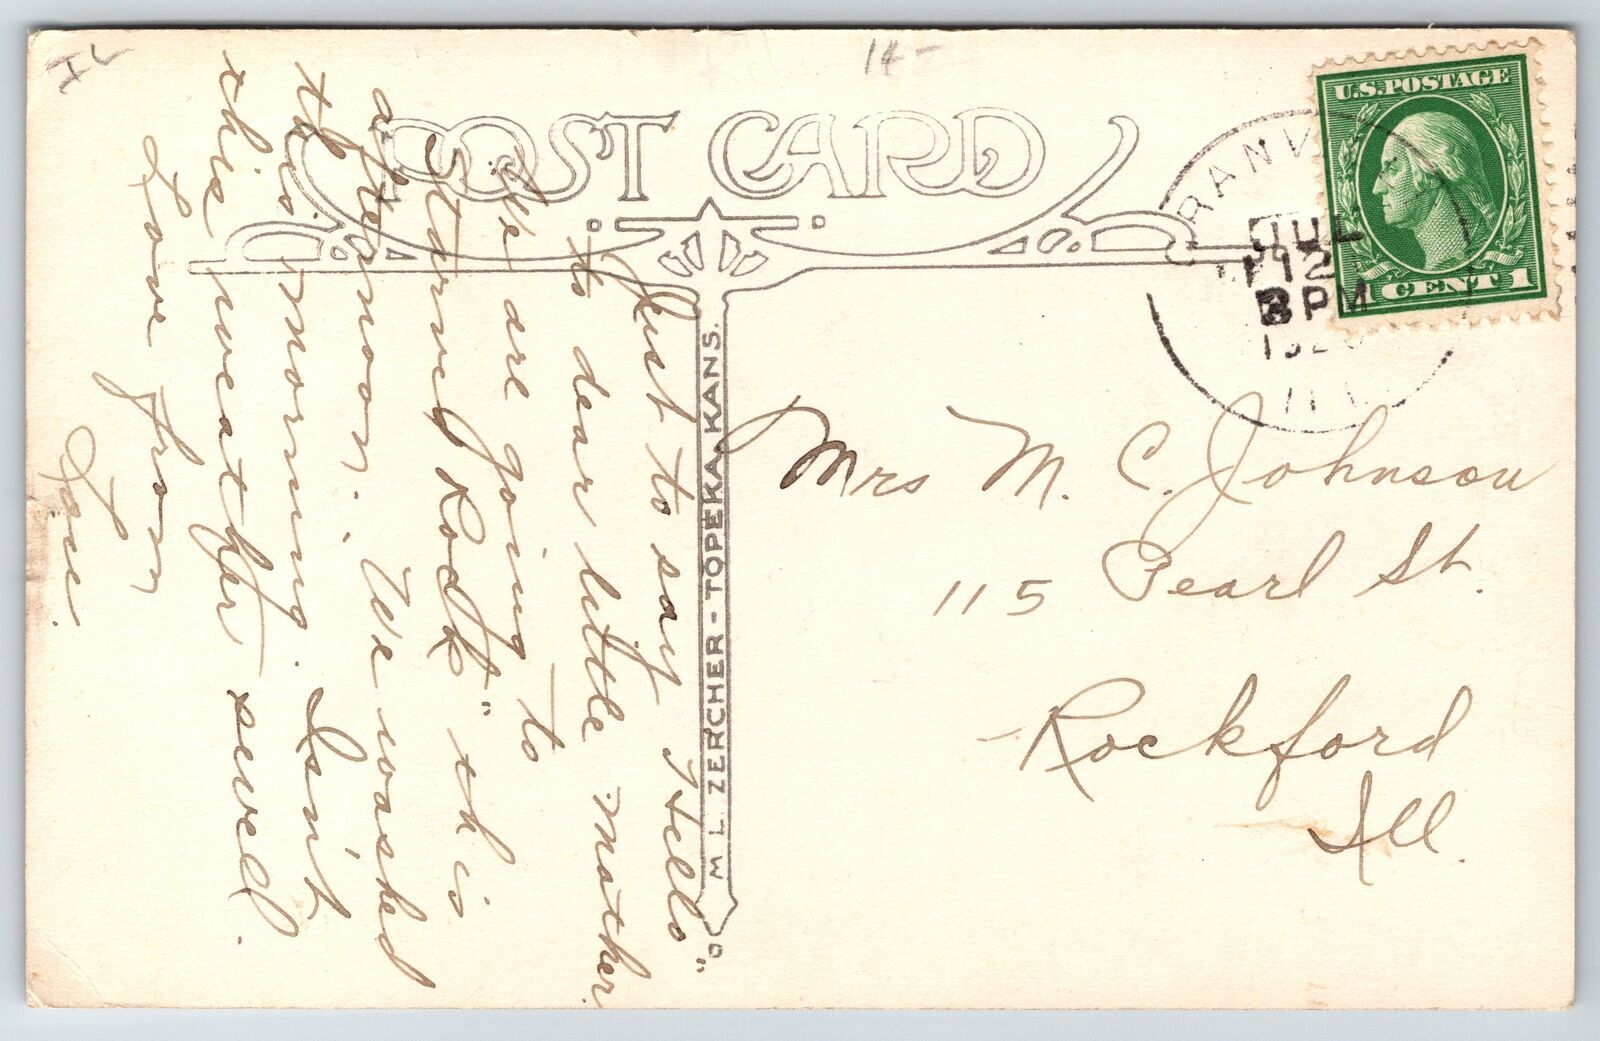 IL
14-
POST CARD
U.S. POSTAGE
1 CENT 1
RANV
JUL
12
3 PM
192
ILL
M. L. ZERCHER - TOPEKA, KANS.
Just to say "Hello"
to dear little mother.
We are going to
"Starved Rock" this
afternoon. We washed
this morning. Isn't
this weather swell.
Love from
Mrs M. C. Johnson
115 Pearl St.
Rockford
Ill.